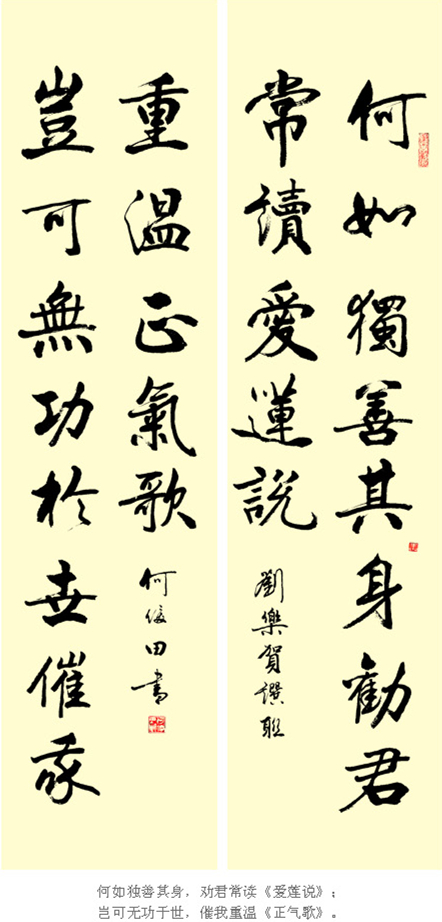 何如獨善其身勸君
常讀愛蓮說
劉樂賀譔聯
豈可無功於世催我
重溫正氣歌
何俊田書
何如独善其身，劝君常读《爱莲说》；
岂可无功于世，催我重温《正气歌》。